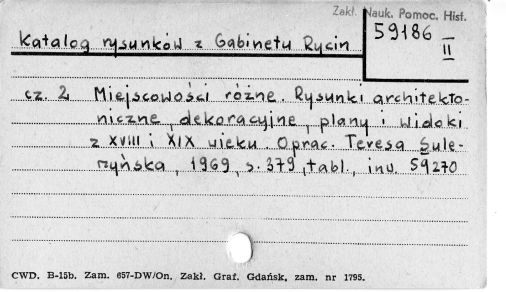 Zakł. Nauk. Pomoc. Hist.
59186
II
Katalog rysunków z Gabinetu Rycin
cz. 2 Miejscowości różne. Rysunki architekto-
niczne, dekoracyjne, plany i widoki
z XVIII i XIX wieku. Oprac. Teresa Sule-
rzyńska, 1969, s. 379, tabl., inw. 59270
CWD. B-15b. Zam. 657-DW/On. Zakł. Graf. Gdańsk, zam. nr 1795.